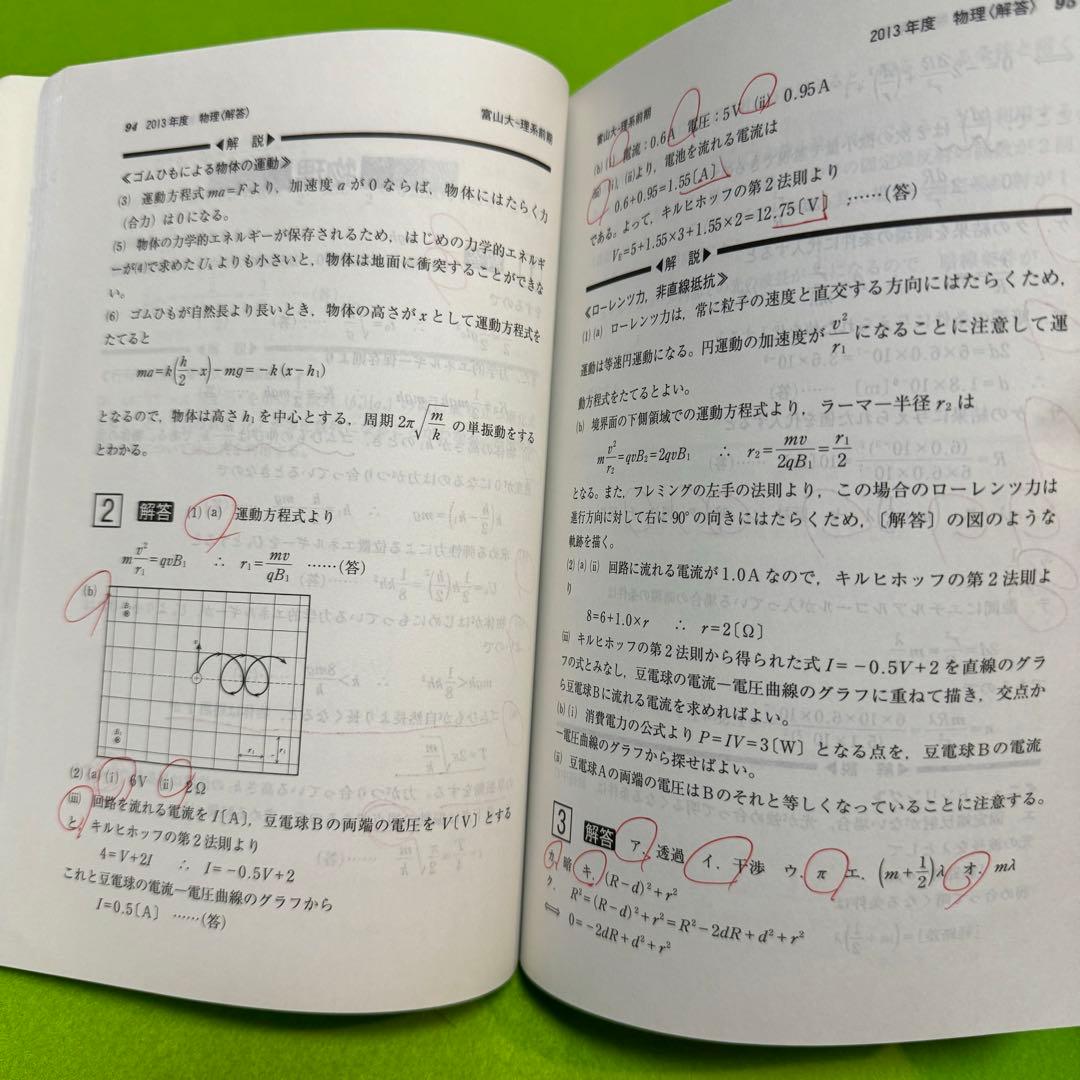 94 2013年度 物理〈解答〉 富山大-理系前期
◀解 説▶
≪ゴムひもによる物体の運動≫
(3) 運動方程式ma=Fより，加速度aが0ならば，物体にはたらく力
(合力)は0になる。
(5) 物体の力学的エネルギーが保存されるため，はじめの力学的エネルギ
ーが(4)で求めたU₀よりも小さいと，物体は地面に衝突することができな
い。
(6) ゴムひもが自然長より長いとき，物体の高さがxとして運動方程式を
たてると
ma=k(h/2-x)-mg=-k(x-h₁)
となるので，物体は高さh₁を中心とする，周期2π√(m/k)の単振動をする
とわかる。
2 解答 (1)(a) 運動方程式より
m v²/r₁=qvB₁ ∴ r₁=mv/qB₁ ……(答)
(b)
B₂
v
B₁
r₁
r₁
(2)(a)(i) 6V (ii) 2Ω
(iii) 回路を流れる電流をI〔A〕，豆電球Bの両端の電圧をV〔V〕とする
と，キルヒホッフの第2法則より
4=V+2I ∴ I=-0.5V+2
これと豆電球の電流―電圧曲線のグラフから
I=0.5〔A〕 ……(答)
2013年度 物理〈解答〉 95
富山大-理系前期
(b)(i) 電流：0.6A 電圧：5V (ii) 0.95A
(iii) (i)，(ii)より，電池を流れる電流は
0.6+0.95=1.55〔A〕
である。よって，キルヒホッフの第2法則より
V₀=5+1.55×3+1.55×2=12.75〔V〕 ……(答)
◀解 説▶
≪ローレンツ力，非直線抵抗≫
(1)(a) ローレンツ力は，常に粒子の速度と直交する方向にはたらくため，
運動は等速円運動になる。円運動の加速度がv²/r₁になることに注意して運
動方程式をたてるとよい。
(b) 境界面の下側領域での運動方程式より，ラーマー半径r₂は
m v²/r₂=qvB₂=2qvB₁ ∴ r₂=mv/2qB₁=r₁/2
となる。また，フレミングの左手の法則より，この場合のローレンツ力は
進行方向に対して右に90°の向きにはたらくため，〔解答〕の図のような
軌跡を描く。
(2)(a)(ii) 回路に流れる電流が1.0Aなので，キルヒホッフの第2法則よ
り
8=6+1.0×r ∴ r=2〔Ω〕
(iii) キルヒホッフの第2法則から得られた式I=-0.5V+2を直線のグラ
フの式とみなし，豆電球の電流―電圧曲線のグラフに重ねて描き，交点か
ら豆電球Bに流れる電流を求めればよい。
(b)(i) 消費電力の公式よりP=IV=3〔W〕となる点を，豆電球Bの電流
―電圧曲線のグラフから探せばよい。
(ii) 豆電球Aの両端の電圧はBのそれと等しくなっていることに注意する。
3 解答 ア．透過 イ．干渉 ウ．π エ．(m+1/2)λ オ．mλ
カ．暗 キ．(R-d)²+r²
ク．R²=(R-d)²+r²=R²-2dR+d²+r²
⟺ 0=-2dR+d²+r²